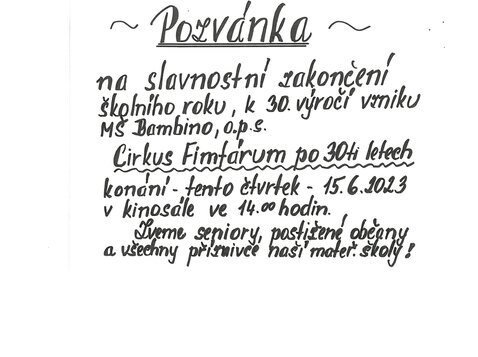 ~ Pozvánka ~
na slavnostní zakončení
školního roku, k 30. výročí vzniku
MŠ Bambino, o.p.s.
Cirkus Fimfárum po 30ti letech
konání - tento čtvrtek - 15.6.2023
v kinosále ve 14.00 hodin.
Zveme seniory, postižené občany
a všechny příznivce naší mateř. školy!